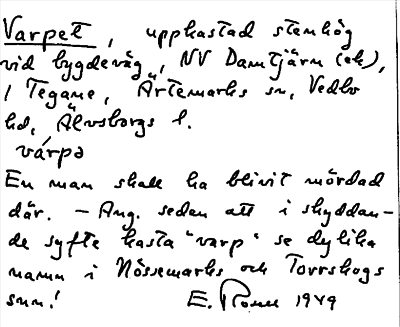 Varpet, uppkastad stenhög
vid bygdeväg, NV Damtjärn (ek),
i Tegane, Ärtemarks sn, Vedbo
hd, Älvsborgs l.
várpə
En man skall ha blivit mördad
där. – Ang. seden att i skyddan-
de syfte kasta "varp" se dylika
namn i Nössemarks och Torrskogs
snn! E. 1949